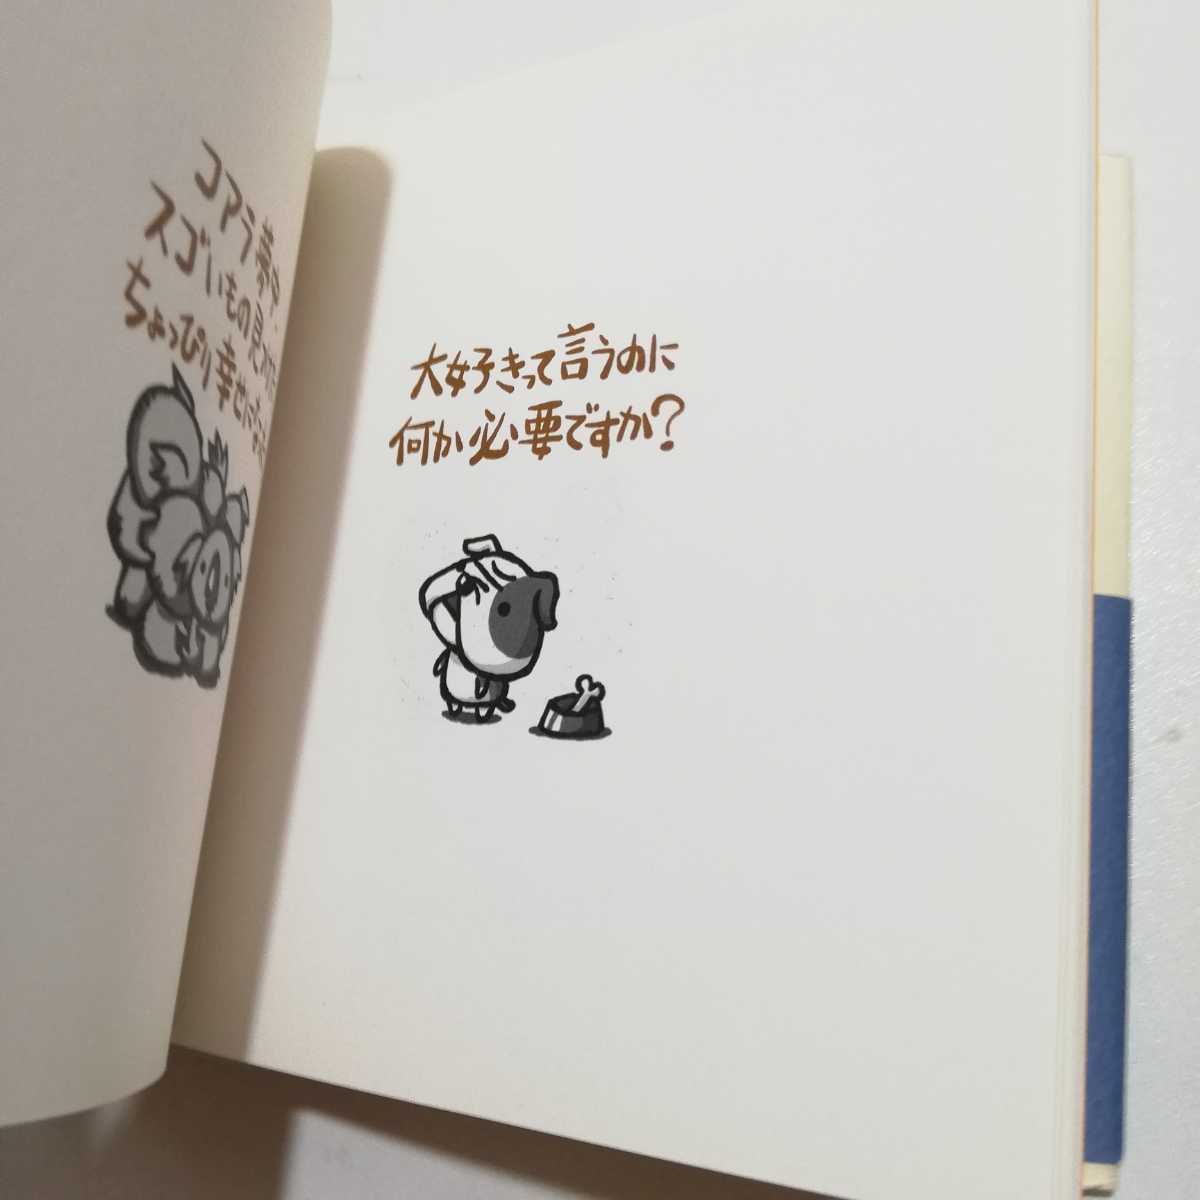 コアラ夢中
スゴいもの見つけた
ちょっぴり幸せに
大好きって言うのに
何か必要ですか?